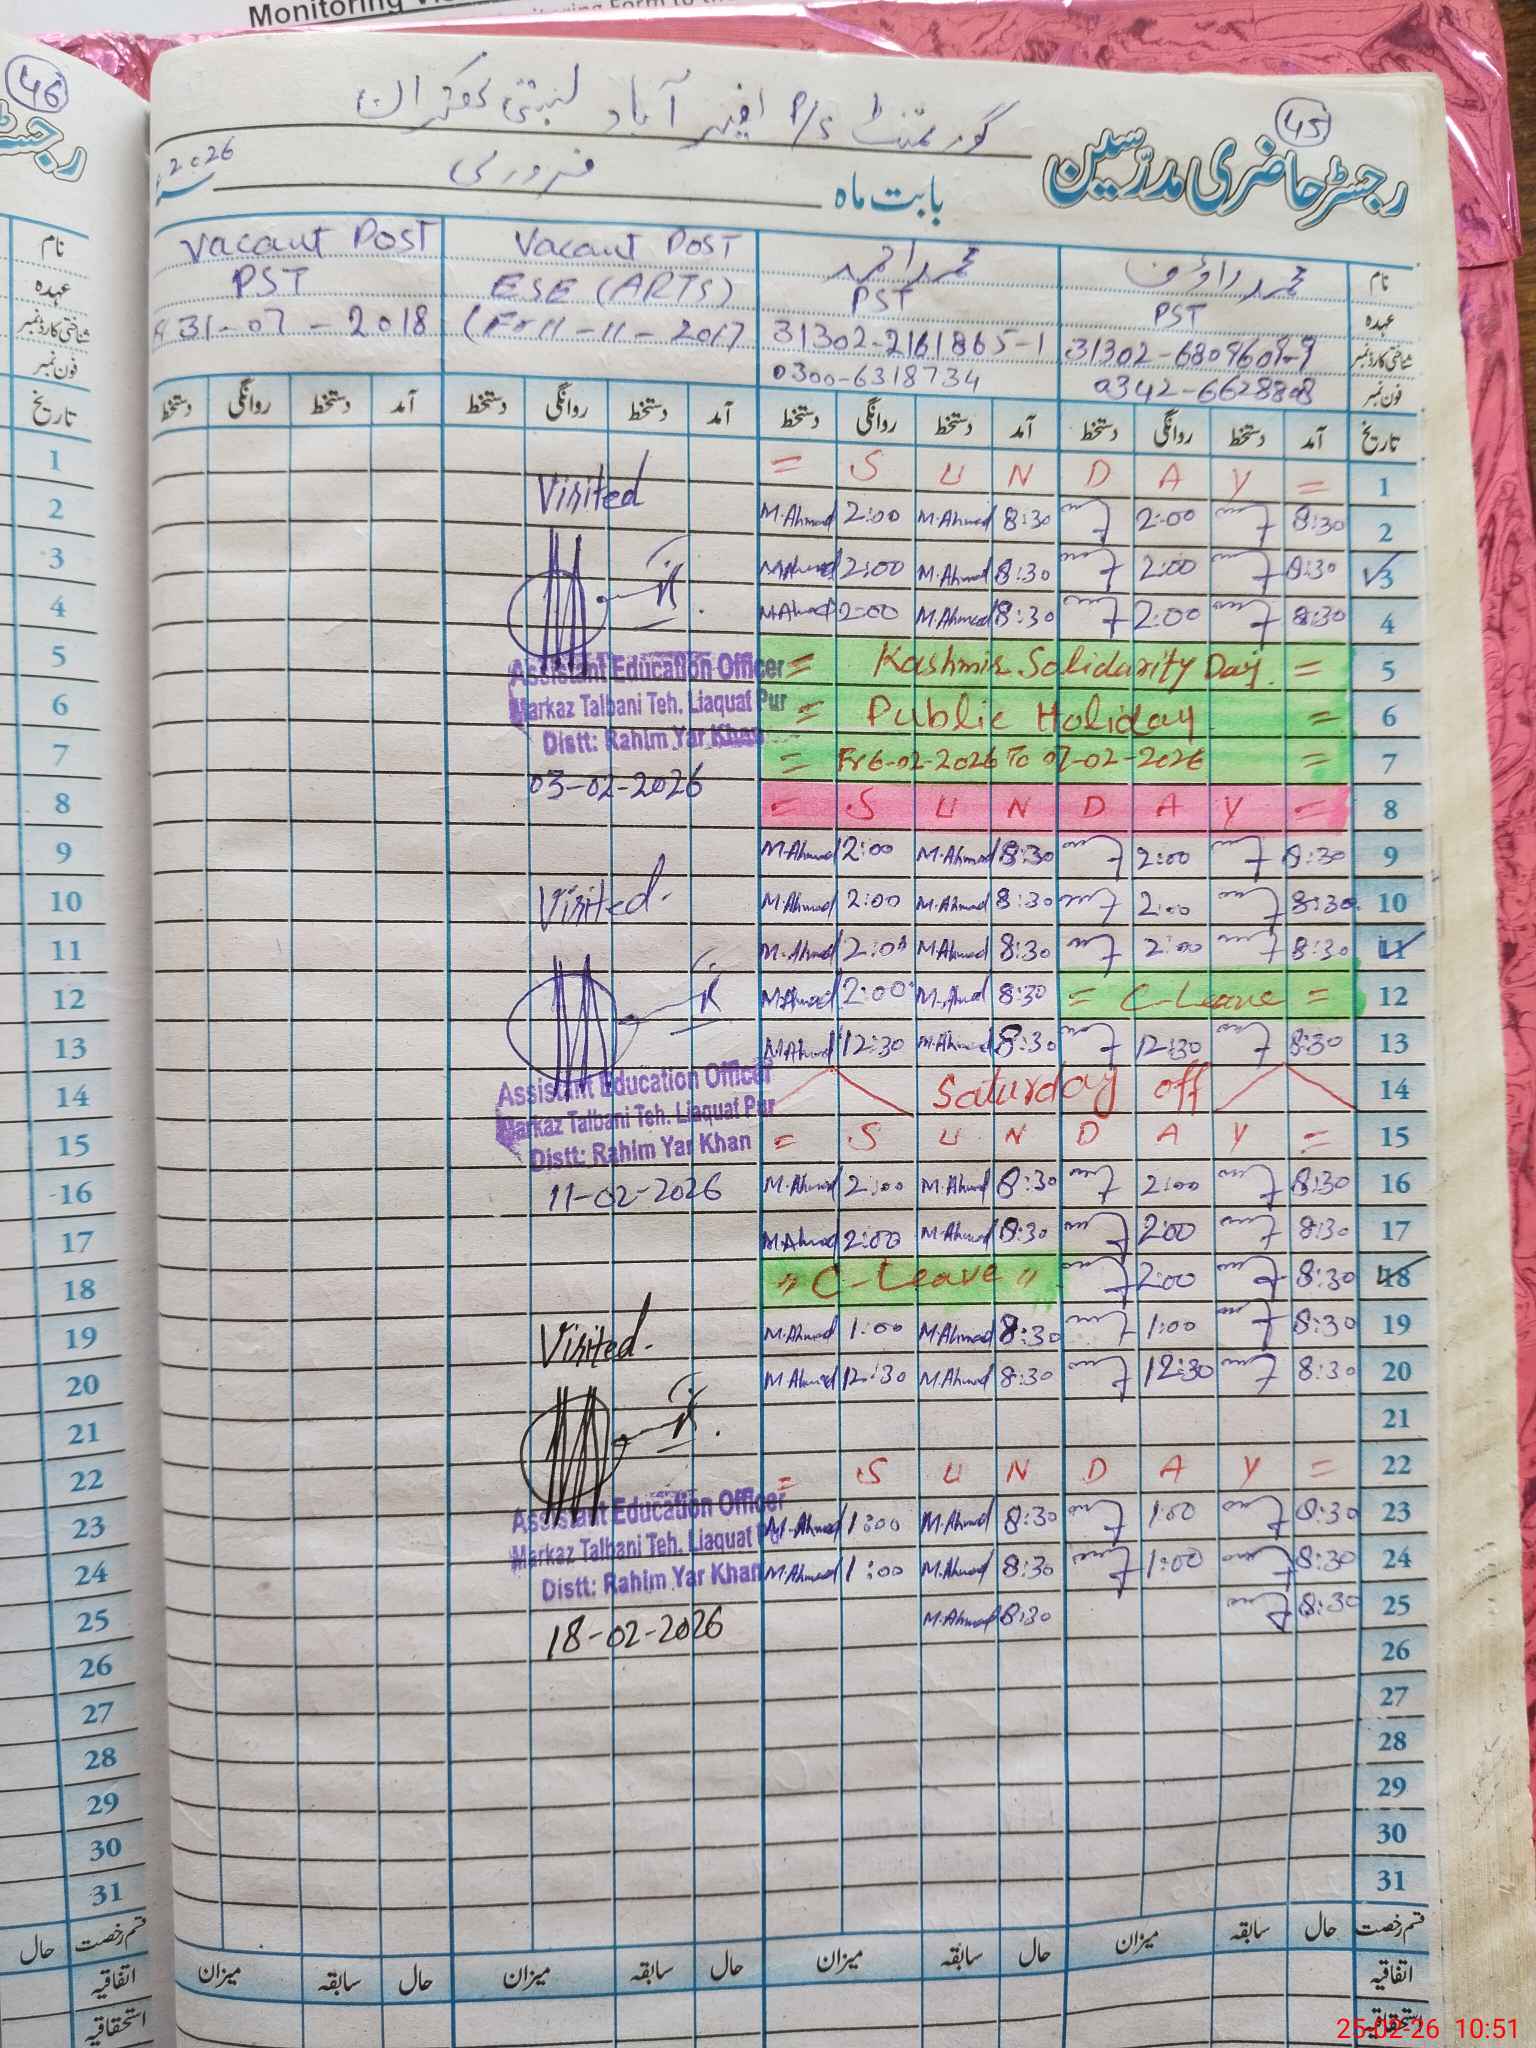 Monitoring
46
45
رجسٹر حاضری مدرّسین
گورنمنٹ P/S آباد
بابت ماہ فروری 2026
نام محمد راؤف محمد احمد Vacant Post Vacant Post نام
عہدہ PST PST ESE (ARTS) PST عہدہ
شناختی کارڈ نمبر 31302-6809608-9 31302-2161865-1 (Fr 11-11-2017 31-07-2018 شناختی کارڈ نمبر
فون نمبر 0342-6628808 0300-6318734 فون نمبر
تاریخ آمد دستخط روانگی دستخط آمد دستخط روانگی دستخط آمد دستخط روانگی دستخط آمد دستخط روانگی دستخط تاریخ
1 = S U N D A Y = 1
2 M.Ahmad 2:00 M.Ahmad 8:30 2:00 8:30 2
3 M.Ahmad 2:00 M.Ahmad 8:30 2:00 8:30 3
4 M.Ahmad 2:00 M.Ahmad 8:30 2:00 8:30 4
5 = Kashmir Solidarity Day = 5
6 = Public Holiday = 6
7 = Fr 6-02-2026 To 07-02-2026 = 7
8 = S U N D A Y = 8
9 M.Ahmad 2:00 M.Ahmad 8:30 2:00 8:30 9
10 M.Ahmad 2:00 M.Ahmad 8:30 2:00 8:30 10
11 M.Ahmad 2:00 M.Ahmad 8:30 2:00 8:30 11
12 M.Ahmad 2:00 M.Ahmad 8:30 = C-Leave = 12
13 M.Ahmad 12:30 M.Ahmad 8:30 12:30 8:30 13
14 Saturday off 14
15 = S U N D A Y = 15
16 M.Ahmad 2:00 M.Ahmad 8:30 2:00 8:30 16
17 M.Ahmad 2:00 M.Ahmad 8:30 2:00 8:30 17
18 " C-Leave " 2:00 8:30 18
19 M.Ahmad 1:00 M.Ahmad 8:30 1:00 8:30 19
20 M.Ahmad 12:30 M.Ahmad 8:30 12:30 8:30 20
21 21
22 = S U N D A Y = 22
23 M.Ahmad 1:00 M.Ahmad 8:30 1:00 8:30 23
24 M.Ahmad 1:00 M.Ahmad 8:30 1:00 8:30 24
25 M.Ahmad 8:30 8:30 25
26 26
27 27
28 28
29 29
30 30
31 31
Visited
Assistant Education Officer
Markaz Talbani Teh. Liaquat Pur
Distt: Rahim Yar Khan
03-02-2026
Visited.
Assistant Education Officer
Markaz Talbani Teh. Liaquat Pur
Distt: Rahim Yar Khan
11-02-2026
Visited.
Assistant Education Officer
Markaz Talbani Teh. Liaquat Pur
Distt: Rahim Yar Khan
18-02-2026
قسم رخصت حال سابقہ میزان حال سابقہ میزان حال سابقہ میزان حال سابقہ میزان قسم رخصت حال
اتفاقیہ اتفاقیہ
استحقاقیہ استحقاقیہ
25-02-26 10:51